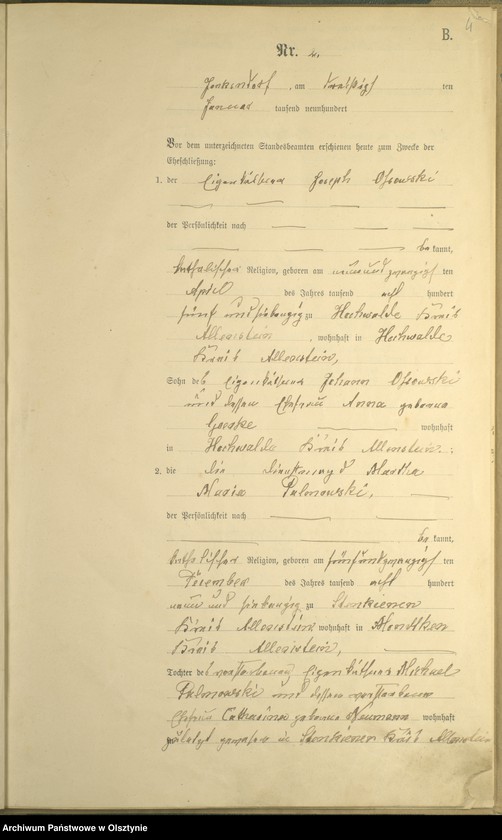 B.
Nr. 2.
Jonkendorf, am ten
Januar tausend neunhundert
Vor dem unterzeichneten Standesbeamten erschienen heute zum Zwecke der
Eheschließung:
1. der Eigenkäthner Joseph
der Persönlichkeit nach
be kannt,
katholischer Religion, geboren am neunundzwanzigsten
April des Jahres tausend acht hundert
fünf und siebenzig zu Hochwalde Kreis
Allenstein, wohnhaft in Hochwalde
Kreis Allenstein,
Sohn des Eigenkäthners Johann
und dessen Ehefrau Anna geborene
wohnhaft
in Hochwalde Kreis Allenstein.
2. die die Dienstmagd Martha
Maria
der Persönlichkeit nach
be kannt,
katholischer Religion, geboren am fünfundzwanzigsten
Dezember des Jahres tausend acht hundert
neun und siebenzig zu Stenkienen
Kreis Allenstein wohnhaft in Mondtken
Kreis Allenstein,
Tochter des verstorbenen Eigenkäthners Michael
und dessen verstorbene
Ehefrau Catharina geborene Neumann wohnhaft
zuletzt gewesen in Stenkienen Kreis Allenstein
Archiwum Państwowe w Olsztynie